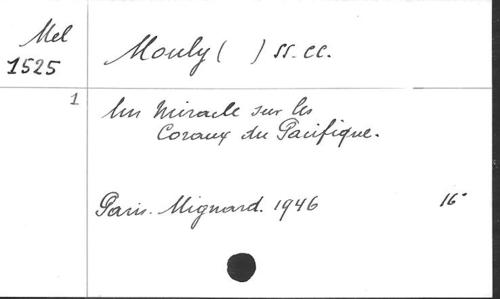 Mel
1525
Mouly ( ) SS. CC.
1
Un Miracle sur les
Coraux du Pacifique.
Paris. Mignard. 1946
16°